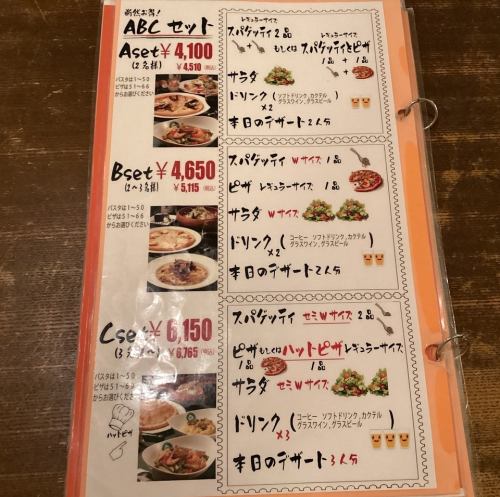 断然お得!
ABC セット
Aset ¥4,100
(2名様) ¥4,510 (税込)
パスタは1～50
ピザは51～66
からお選びください
レギュラーサイズ
スパゲッティ 2品
+
もしくは
レギュラーサイズ
スパゲッティとピザ
1品 + 1品
+
サラダ
ドリンク (ソフトドリンク, カクテル
グラスワイン, グラスビール)
×2
本日のデザート 2人分
Bset ¥4,650
(2～3名様) ¥5,115 (税込)
パスタは1～50
ピザは51～66
からお選びください
スパゲッティ Wサイズ 1品
ピザ レギュラーサイズ 1品
サラダ Wサイズ
ドリンク (コーヒー ソフトドリンク, カクテル
グラスワイン, グラスビール)
×2
本日のデザート 2人分
Cset ¥6,150
¥6,765 (税込)
パスタは1～50
ピザは51～66
からお選びください
ハットピザ
スパゲッティ セミWサイズ 2品
ピザ もしくは ハットピザ レギュラーサイズ
1品 1品
サラダ セミWサイズ
ドリンク (コーヒー ソフトドリンク, カクテル
グラスワイン, グラスビール)
×3
本日のデザート 3人分